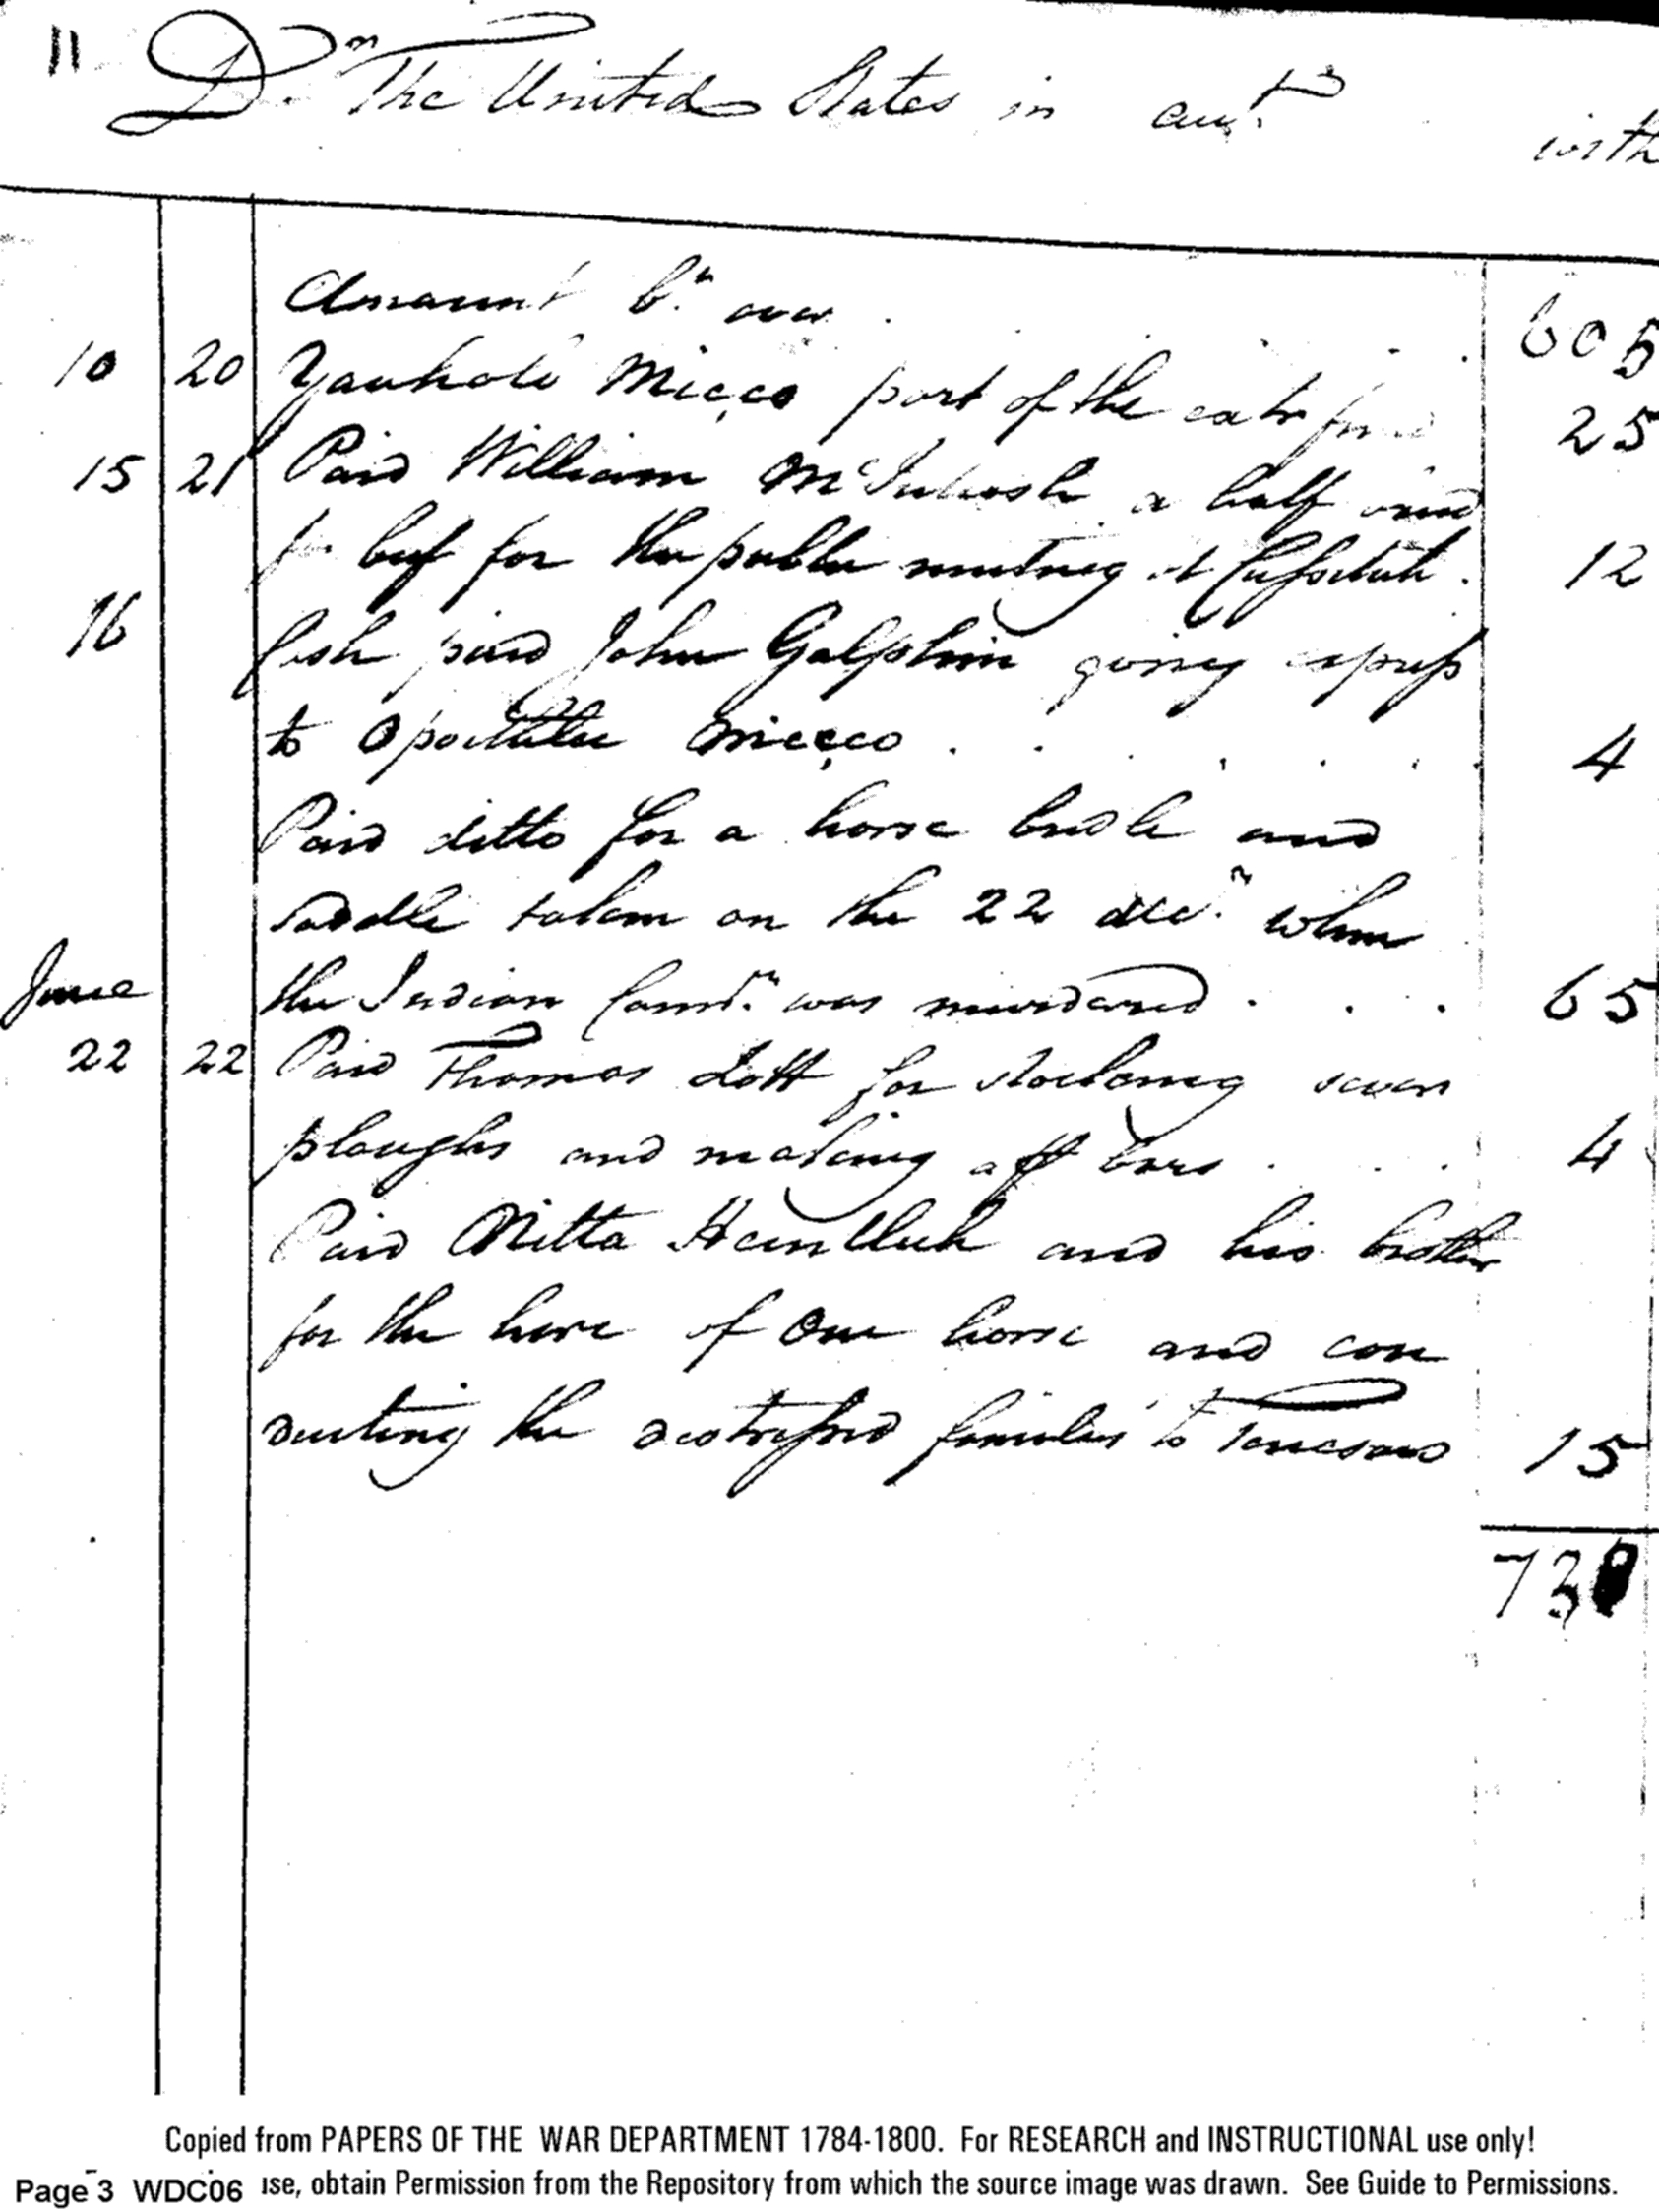 11 Dr. The United States in acct. with
Amount bt. over . . . . 605
10 20 Yauholo Micco part of the 25
15 21 Paid William McIntosh a half
for beef for the public meeting at Cussetuh . 12
16 Cash paid John Galphin going express
to Opoithlu Micco . . . . . . 4
Paid ditto for a horse bridle and
saddle taken on the 22 decr. when
June the Indian Comr. was murdered . . . 65
22 22 Paid Thomas Lott for stocking seven
ploughs and making bars . . . 4
Paid Nitta and his brother
for the hire of one horse and con
ducting the distressed families to 15
73
Copied from PAPERS OF THE WAR DEPARTMENT 1784-1800. For RESEARCH and INSTRUCTIONAL use only!
Page 3 WDC06 use, obtain Permission from the Repository from which the source image was drawn. See Guide to Permissions.